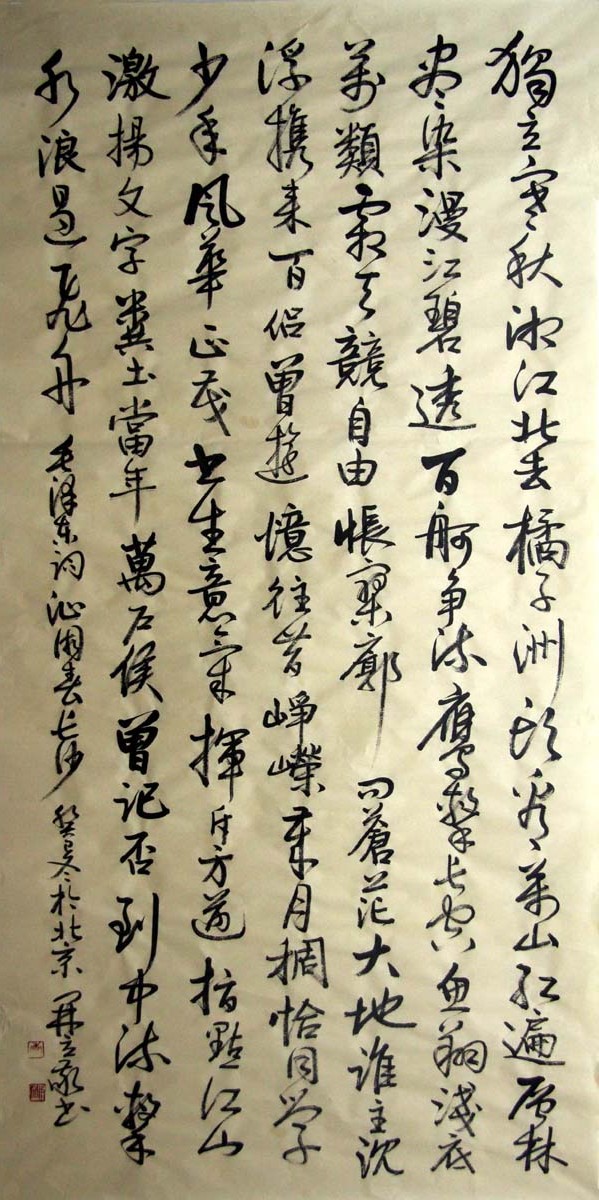 獨立寒秋湘江北去橘子洲頭看萬山紅遍層林
盡染漫江碧透百舸爭流鷹擊長空魚翔淺底
萬類霜天競自由悵寥廓問蒼茫大地誰主沈
浮攜來百侶曾遊憶往昔崢嶸歲月稠恰同學
少年風華正茂書生意氣揮斥方遒指點江山
激揚文字糞土當年萬戶侯曾記否到中流擊
水浪遏飛舟 毛澤東詞沁園春長沙 癸巳冬於北京 書